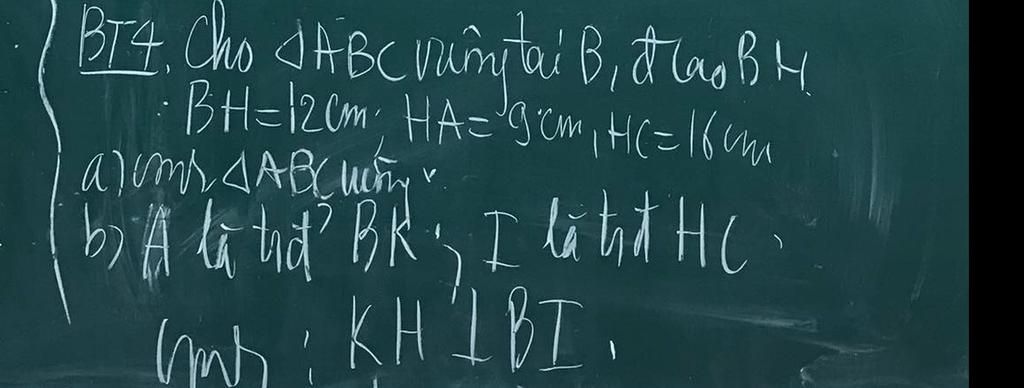 BT4. Cho ΔABC vuông tại B, đ cao BH.
BH=12cm; HA=9cm, HC=16cm
a) cmr ΔABC vuông.
b) A là trđ BK; I là trđ HC.
cmr: KH⊥BI.